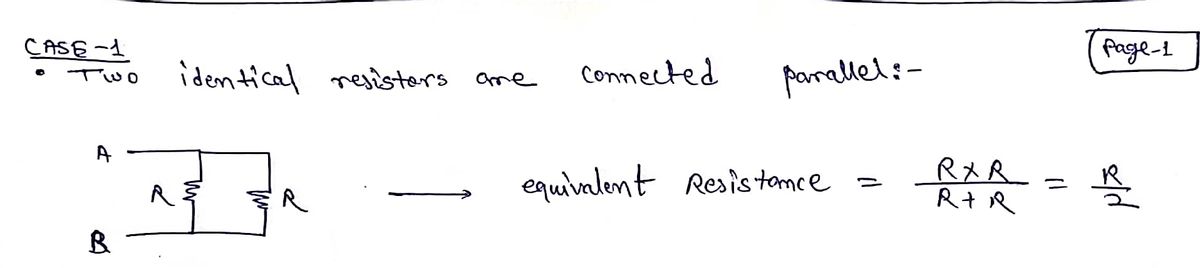 CASE-1
Page-1
• Two identical resistors are connected parallel:-
A
R R → equivalent Resistance = R×R / R+R = R/2
B